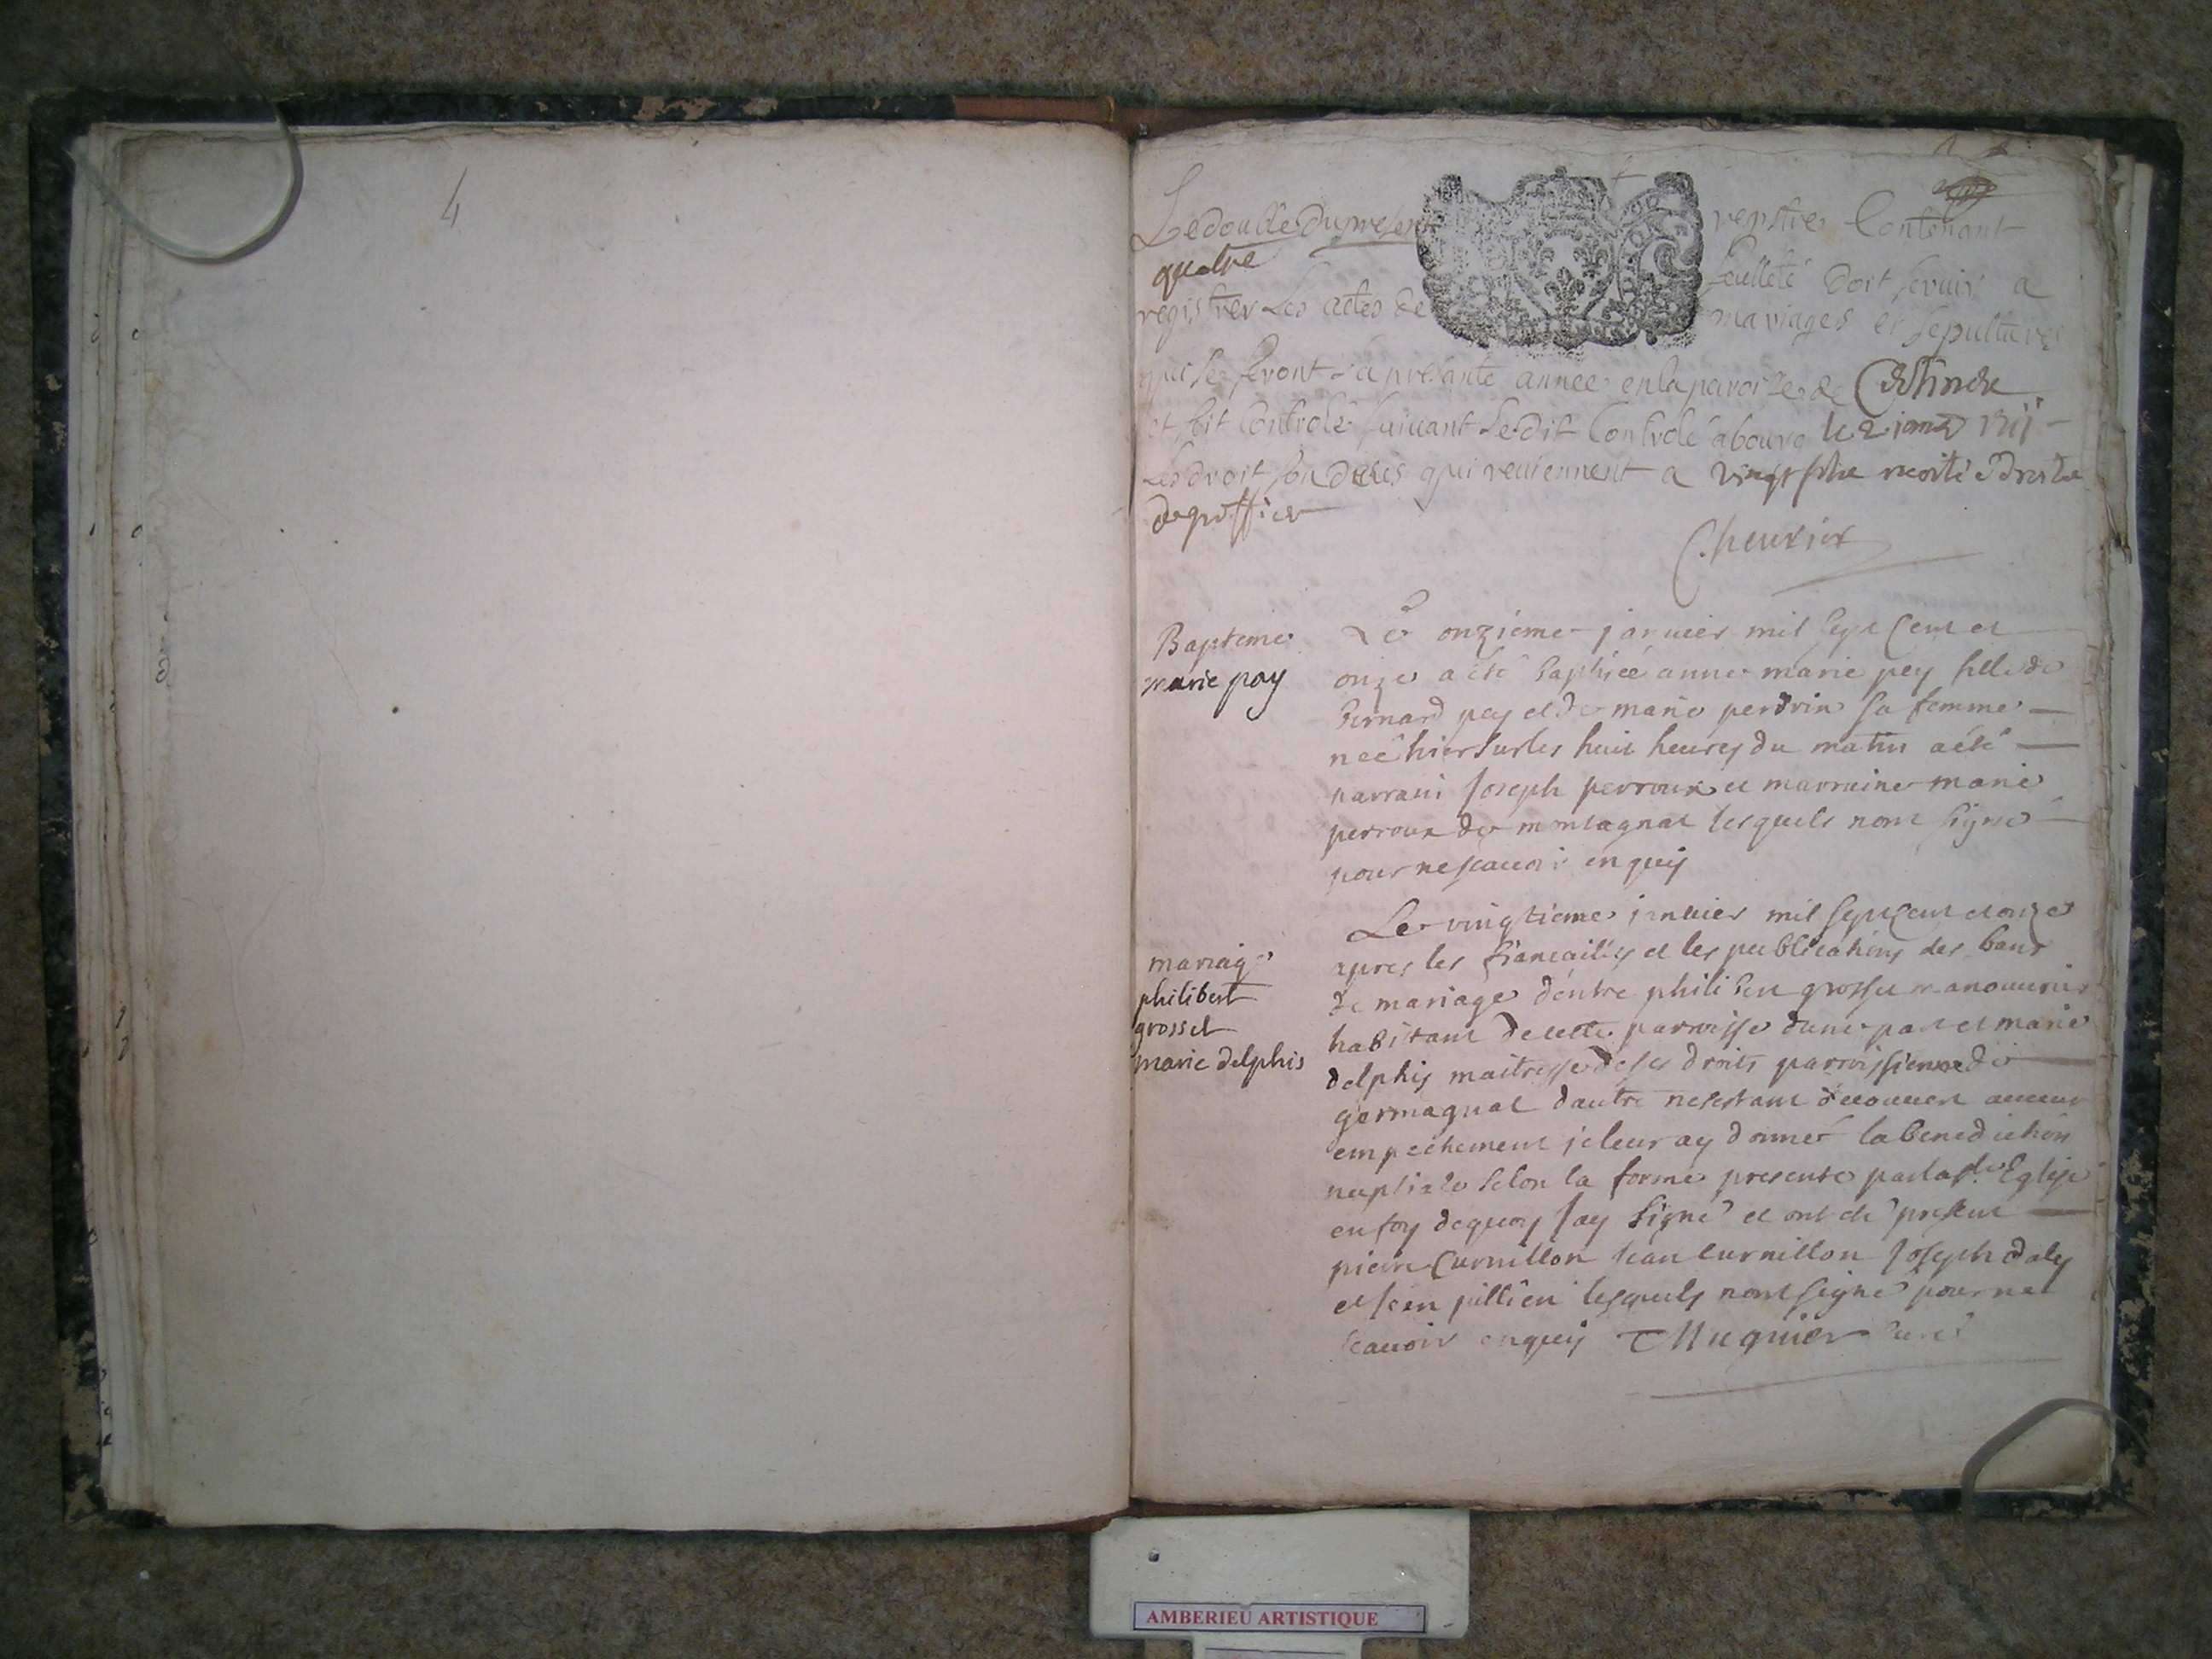 4
Le double du present registre Contenant
quatre feuillets doit servir a
registrer Les actes de mariages et sepultures
qui se feront la presante annee en la paroisse de
et soit Controlé suivant Ledit Controle a bourg le 2 janv 1711
Les droit qui reviennent a vingt
de greffier
Chevrier
Baptime
marie pay
Le onzieme janvier mil sept Cent et
onze a été baptisée anne marie pey fille de
bernard pey et de marie perdrin sa femme
neé hier sur les huit heures du matin a été
parrain joseph perroux et marraine marie
perroux de montagnat lesquels n'ont signé
pour ne scavoir enquis
mariage
philibert
grosset
marie delphis
Le vingtieme janvier mil sept Cent et onze
apres les fiancailles et les publications des bans
de mariage d'entre philibert grosset manouvrier
habitant de cette parroisse d'une part et marie
delphis maitresse de ses droits parroissienne de
germagnat d'autre ne s'estant decouvert aucun
empechement je leur ay donné la benediction
nuptiale selon la forme presente par la ste Eglise
en foy de quoy j'ay signé et ont eté present
pierre Curnillon jean Curnillon joseph daly
et jean jullien lesquels n'ont signé pour ne
scavoir enquis Muguier curé
AMBERIEU ARTISTIQUE